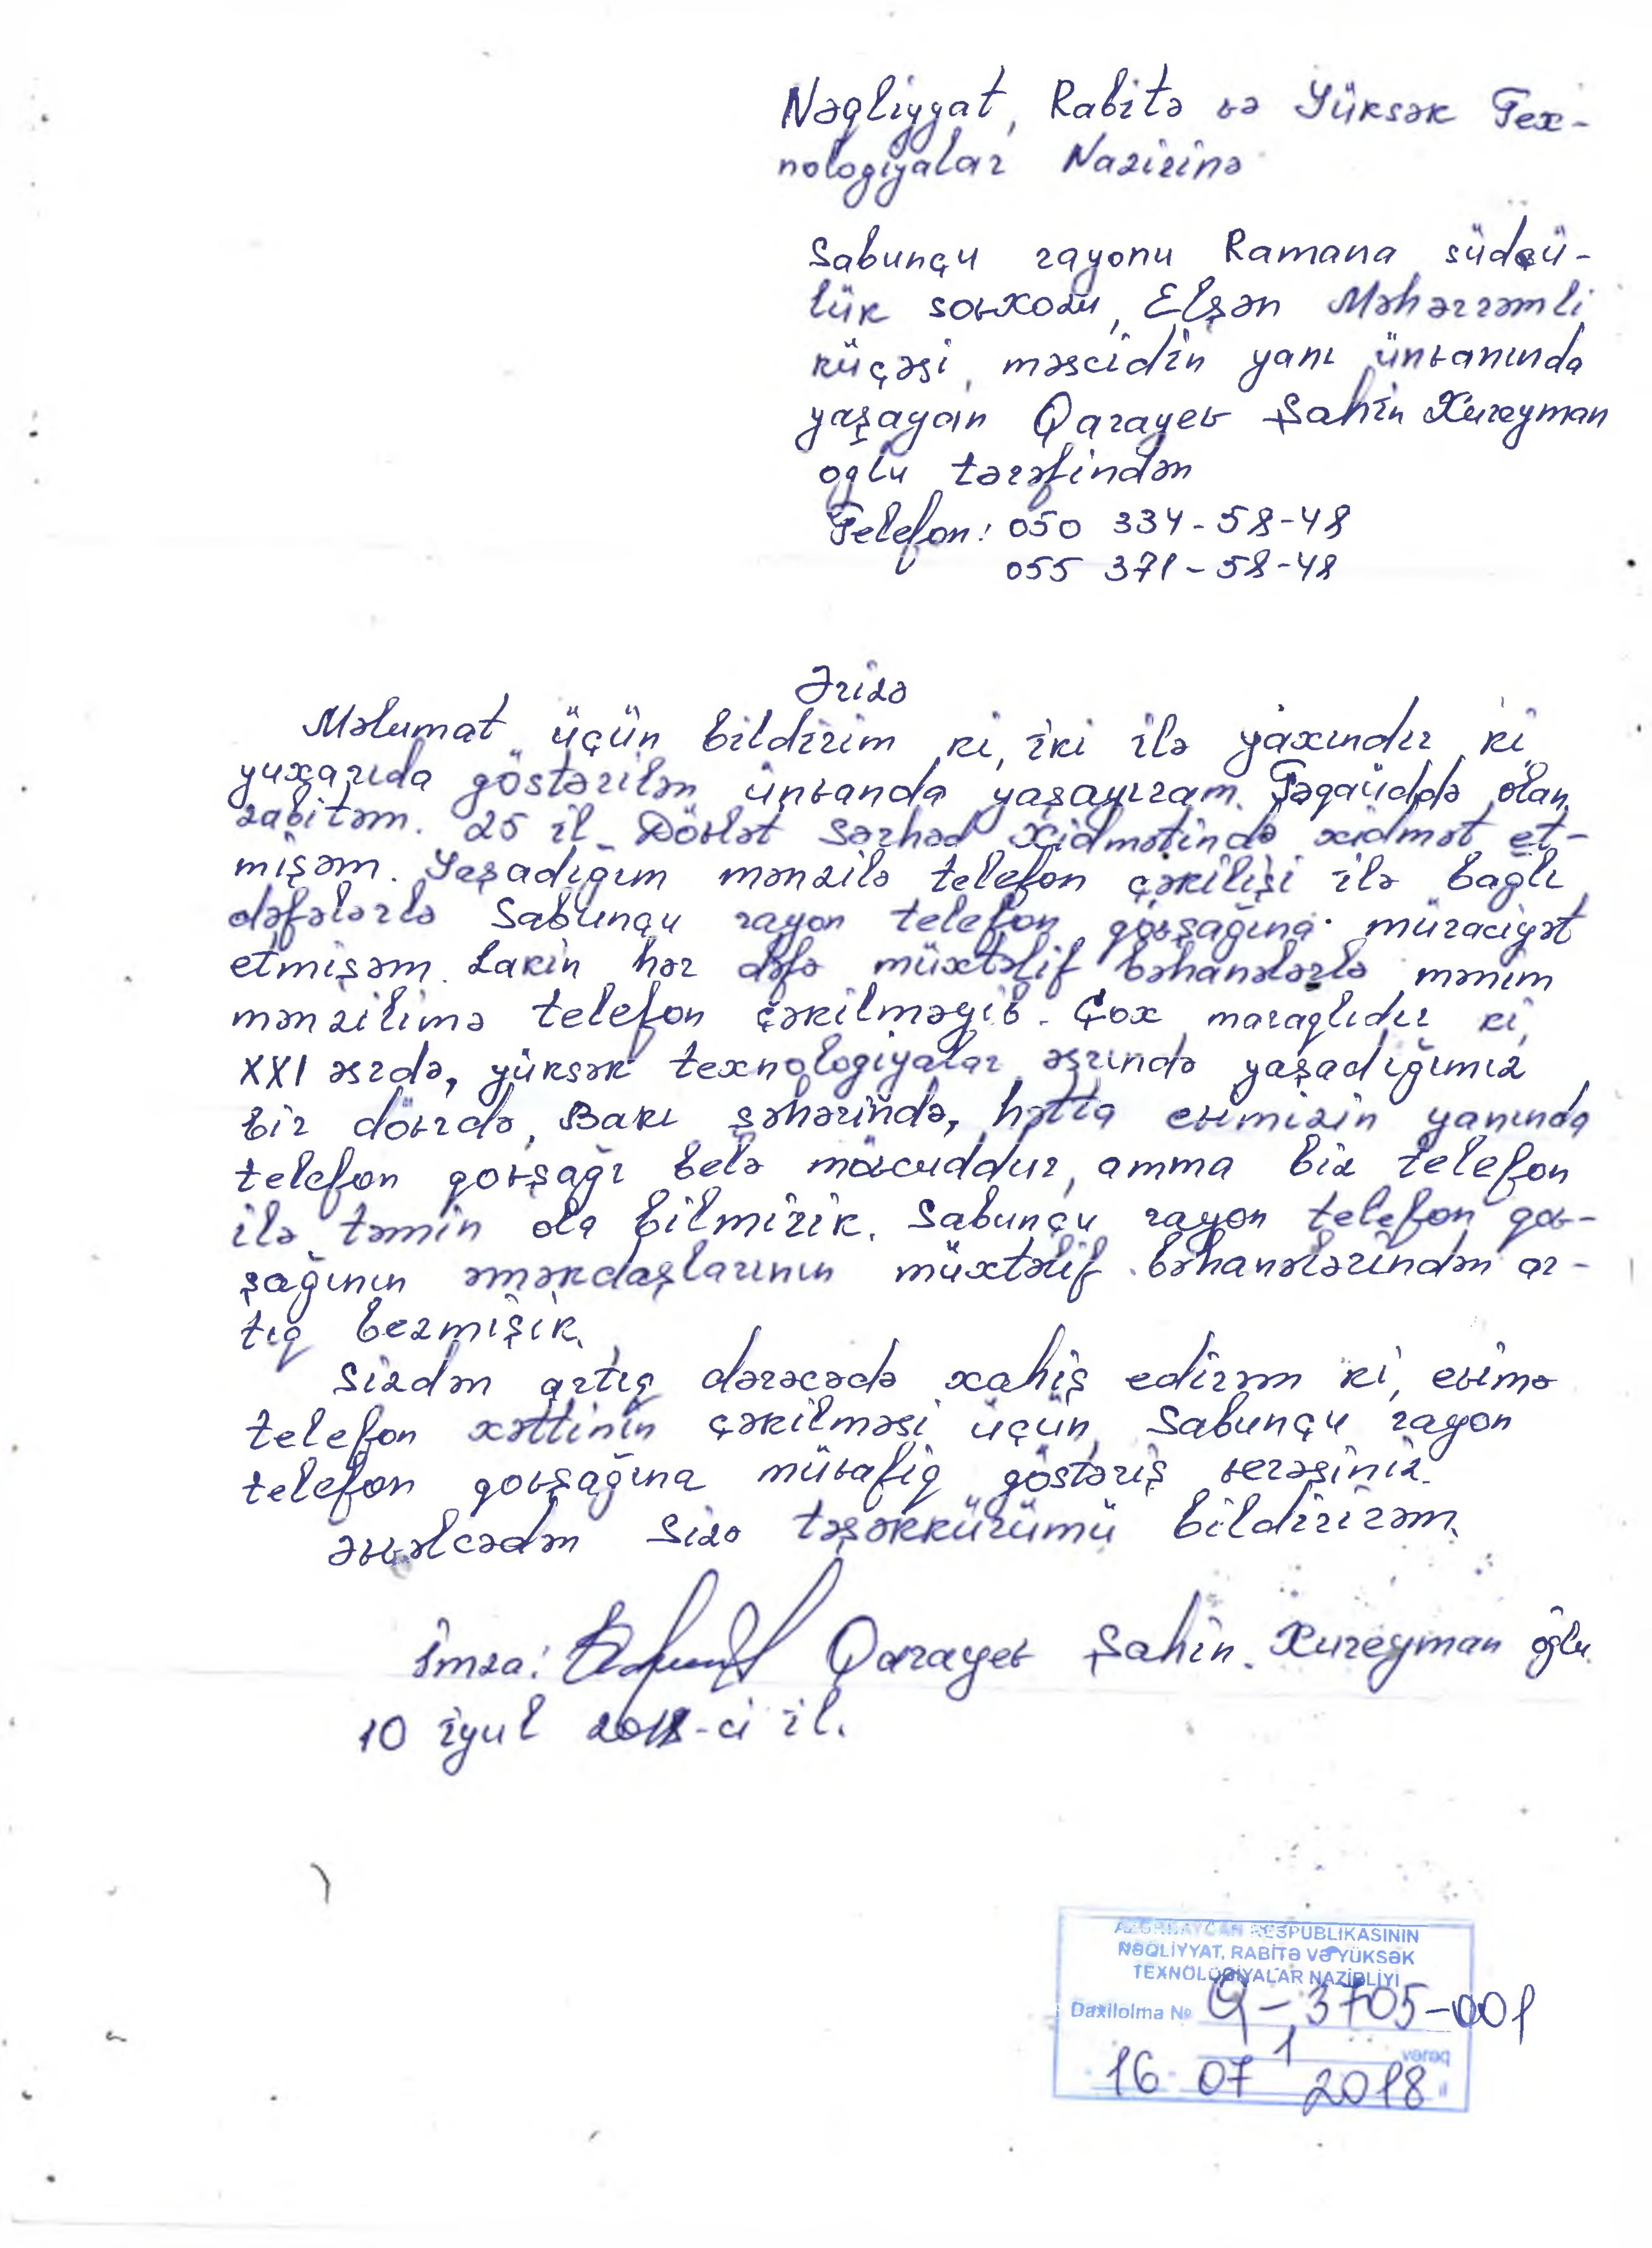 Nəqliyyat, Rabitə və Yüksək Tex-
nologiyalar Nazirinə
Sabunçu rayonu Ramana südçü-
lük sovxozu, Elşən Məhərrəmli
küçəsi, məscidin yanı ünvanında
yaşayan Qarayev Şahin Xureyman
oglu tərəfindən
Telefon: 050 334-58-48
055 371-58-48
Ərizə
Məlumat üçün bildirim ki, iki ilə yaxındır ki
yuxarıda göstərilən ünvanda yaşayıram. Təqaüddə olan
zabitəm. 25 il Dövlət Sərhəd Xidmətində xidmət et-
mişəm. Yaşadığım mənzilə telefon çəkilişi ilə baglı
dəfələrlə Sabunçu rayon telefon qovşağına müraciyət
etmişəm. Lakin hər dəfə müxtəlif bəhanələrlə mənim
mənzilimə telefon çəkilməyib. Çox maraqlıdır ki,
XXI əsrdə, yüksək texnologiyalar əsrində yaşadığımız
bir dövrdə, Bakı şəhərində, hətta evimizin yanında
telefon qovşağı belə mövcuddur, amma biz telefon
ilə təmin ola bilmirik. Sabunçu rayon telefon qov-
şağının əməkdaşlarının müxtəlif bəhanələrindən ar-
tıq bezmişik.
Sizdən artıq dərəcədə xahiş edirəm ki, evimə
telefon xəttinin çəkilməsi üçün, Sabunçu rayon
telefon qovşağına müvafiq göstəriş verəsiniz.
Əvvəlcədən Sizə təşəkkürümü bildirirəm.
İmza: Qarayev Şahin Xureyman oğlu
10 iyul 2018-ci il.
AZƏRBAYCAN RESPUBLİKASININ
NƏQLİYYAT, RABİTƏ VƏ YÜKSƏK
TEXNOLOGİYALAR NAZİRLİYİ
Daxilolma № Q-3705-001
1 vərəq
16 07 2018 il